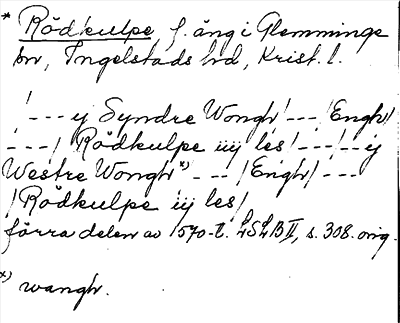 * Rödkulpe, f. äng i Glemminge
sn, Ingelstads hd, Krist. l.
/--- ij Syndre Wongh /--- /Engh/
---/ Rödkulpe iij les /---/--ij
Westre Wongh *) - -- /Engh/ ---
/Rödkulpe iij les/
förra delen av 1570-t. LSLB II, s. 308. orig.
*) wangh.